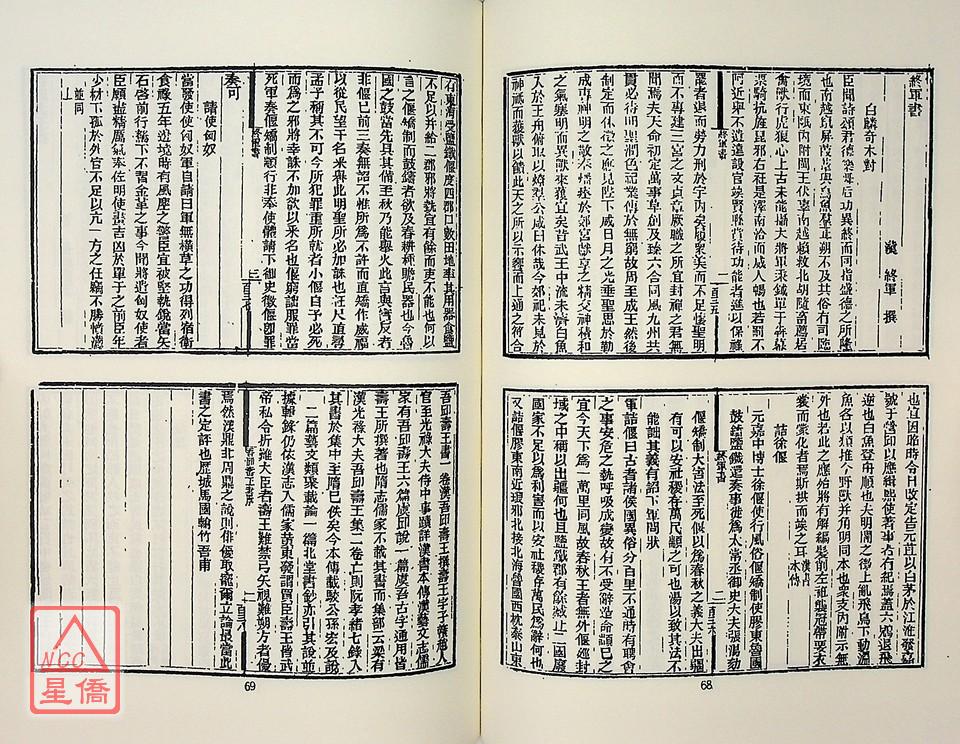 終軍書
漢 終軍 撰
白麟奇木對
臣聞詩頌君德樂舞后功異經而同指盛德之所隆
也南越竄屏葭葦與鳥魚羣正朔不及其俗有司臨
境而東甌內附閩王伏辜南越賴救北胡隨畜薦居
禽獸行虎狼心上古未能攝大將軍秉鉞單于奔幕
票騎抗旌昆邪右衽是澤南洽而威北暢也若罰不
阿近舉不遺遠設官竢賢縣賞待功能者進以保祿
終軍書
一
罷者退而勞力刑於宇內矣履衆美而不足懷聖明
而不專建三宮之文質章厥職之所宜封禪之君無
聞焉夫天命初定萬事草創及臻六合同風九州共
貫必待明聖潤色祖業傳於無窮故周至成王然後
制定而休徵之應見陛下盛日月之光垂聖思於勒
成專神明之敬奉燔瘞於郊宮獻享之精交神積和
之氣塞明而異獸來獲宜矣昔武王中流未濟白魚
入於王舟俯取以燎羣公咸曰休哉今郊祀未見於
神祇而獲獸以饋此天之所以示饗而上通之符合
也宜因昭時令日改定告元苴以白茅於江淮發嘉
號于營邱以應緝熙使著事者有紀焉蓋六鶂退飛
逆也白魚登舟順也夫明闇之徵上亂飛鳥下動淵
魚各以類推今野獸并角明同本也衆支內附示無
外也若此之應殆將有解編髮削左衽襲冠帶要衣
裳而蒙化者焉斯拱而竢之耳 漢書本傳
詰徐偃
元鼎中博士徐偃使行風俗偃矯制使膠東魯國
鼓鑄鹽鐵還奏事徙為太常丞御史大夫張湯劾
終軍書
二
偃矯制大害法至死偃以為春秋之義大夫出疆
有可以安社稷存萬民顓之可也湯以致其法不
能詘其義有詔下軍問狀
軍詰偃曰古者諸侯國異俗分百里不通時有聘會
之事安危之埶呼吸成變故有不受辭造命顓己之
宜今天下為一萬里同風故春秋王者無外偃巡封
域之中稱以出疆何也且鹽鐵郡有餘臧正二國廢
國家不足以為利害而以安社稷存萬民為辭何也
又詰偃膠東南近琅邪北接北海魯國西枕泰山東
68
有東海受鹽鐵偃度四郡口數田地率其用器食鹽
不足以并給二郡邪將埶宜有餘而吏不能也何以
言之偃矯制而鼓鑄者欲及春耕種贍民器也今魯
國之鼓當先具其備至秋乃能舉火此言與實反者
非偃已前三奏無詔不惟所為不許而直矯作威福
以從民望干名采譽此明聖所必加誅也枉尺直尋
孟子稱其不可今所犯罪重所就者小偃自予必死
而為之邪將幸誅不加欲以采名也偃窮詘服罪當
死軍奏偃矯制顓行非奉使體請下御史徵偃即罪
終軍書
三
奏可
請使匈奴
當發使使匈奴軍自請曰軍無橫草之功得列宿衛
食祿五年邊境時有風塵之警臣宜被堅執銳當矢
石啟前行駑下不習金革之事今聞將遣匈奴使者
臣願盡精厲氣奉佐明使畫吉凶於單于之前臣年
少材下孤於外官不足以亢一方之任竊不勝憤懣
並同上
吾邱壽王書一卷漢吾邱壽王撰壽王字子贛趙人
官至光祿大夫侍中事蹟詳漢書本傳漢藝文志儒
家有吾邱壽王六篇虞邱說一篇虞吾古字通用皆
壽王所撰著也隋志儒家不載其書而集部云梁有
漢光祿大夫吾邱壽王集二卷亡則阮孝緒七錄入
其書於集中至隋已佚矣今本傳載駁公孫宏及說
二篇藝文類聚載論一篇北堂書鈔亦引其說並
據輯錄仍依漢志入儒家黃東發謂買臣壽王皆武
帝私令折難大臣者壽王難禁弓矢視難朔方者優
焉然漢鼎非周鼎之說則俳優取寵爾立論最當此
書之定評也歷城馬國翰竹吾甫
69
NCC
星僑